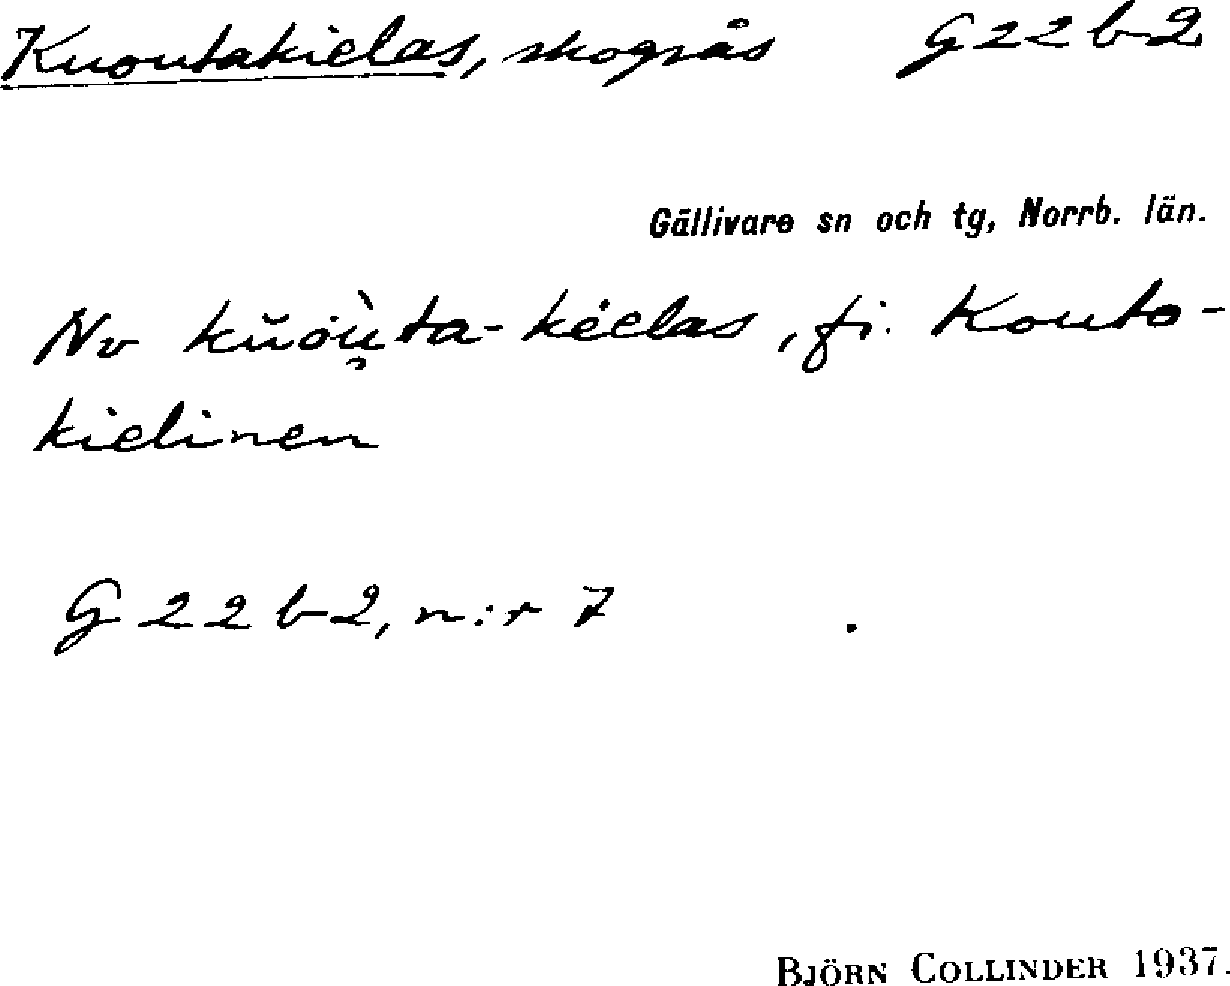 Kuoutakielas, skogsås G 22 b 2
Gällivare sn och tg, Norrb. län.
Nv kŭoùta-kėelas, fi. Kouto-
kielinen
G 22 b 2, n:r 7
BJÖRN COLLINDER 1937.